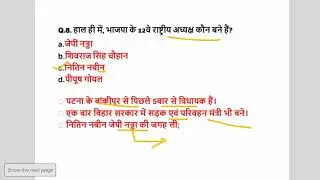 Q.8. हाल ही में, भाजपा के 12वे राष्ट्रीय अध्यक्ष कौन बने हैं?
a.जेपी नड्डा
b.शिवराज सिंह चौहान
c.नितिन नबीन
d.पीयूष गोयल
पटना के बांकीपुर से पिछले 5बार से विधायक हैं।
एक वार बिहार सरकार में सड़क एवं परिवहन मंत्री भी बने।
नितिन नबीन जेपी नड्डा की जगह ली;
Show the next page